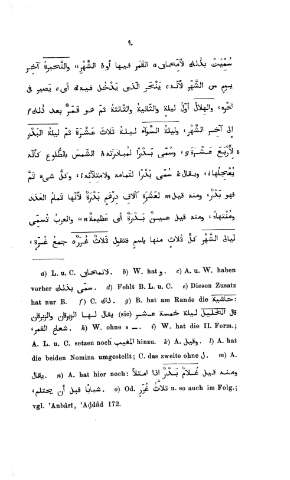 ٩
سُمّيت بذلك لامتحاق القمر فيها أو الشهر والنحيرة آخر
يوم من الشهر لأنه ينحر الذى يدخل فيه اى يصير فى
نحره والهلال أوّل ليلة والثانية والثالثة ثم هو قمرٌ بعد ذلك
إلى آخر الشهر وليلة السواء ليلة ثلاث عشرة ثم ليلة البدر
لأربع عشرة وسمّى بدرًا لمبادرته الشمس بالطلوع كأنه
يُعجلها ويقال سُمّى بدرًا لتمامه وامتلائه وكل شىء تمّ
فهو بدر ومنه قيل لعشرة آلاف درهم بدرة لأنها تمام العدد
ومنتهاه ومنه قيل عين بدرة اى عظيمة والعرب تُسمّى
ليالى الشهر كل ثلاث منها باسم فتقول ثلاث غُرَر جمع غُرّة
a) L. u. C. لامتحاق. b) W. hat و. c) A. u. W. haben
vorher سمّى بذلك. d) Fehlt B. L. u. C. e) Diesen Zusatz
hat nur B. f) C. ذلك. g) B. hat am Rande die حاشية:
قال الخليل ليلة خمسة عشر (sic) يقال لها الزبرقان والزبرقان
شعاع القمر. h) W. ohne و. i) W. hat die II. Form.
A. L. u. C. setzen noch المغيب hinzu. k) A. وقيل. l) A. hat
die beiden Nomina umgestellt; C. das zweite ohne ل. m) A.
يقال. n) A. hat hier noch: ومنه قيل غلام بدر اذا امتلأ
شبابًا قبل أن يحتلم. o) Od. ثلاث غرر u. so auch im Folg.;
vgl. 'Anbârî, 'Aḍdâd 172.